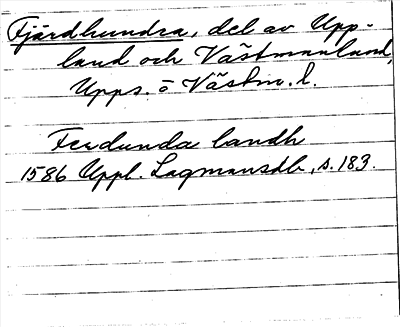 Fjärdhundra, del av Upp-
land och Västmanland,
Upps. o Västm. l.
Ferdunda landh
1586 Uppl. Lagmansdb, s. 183.